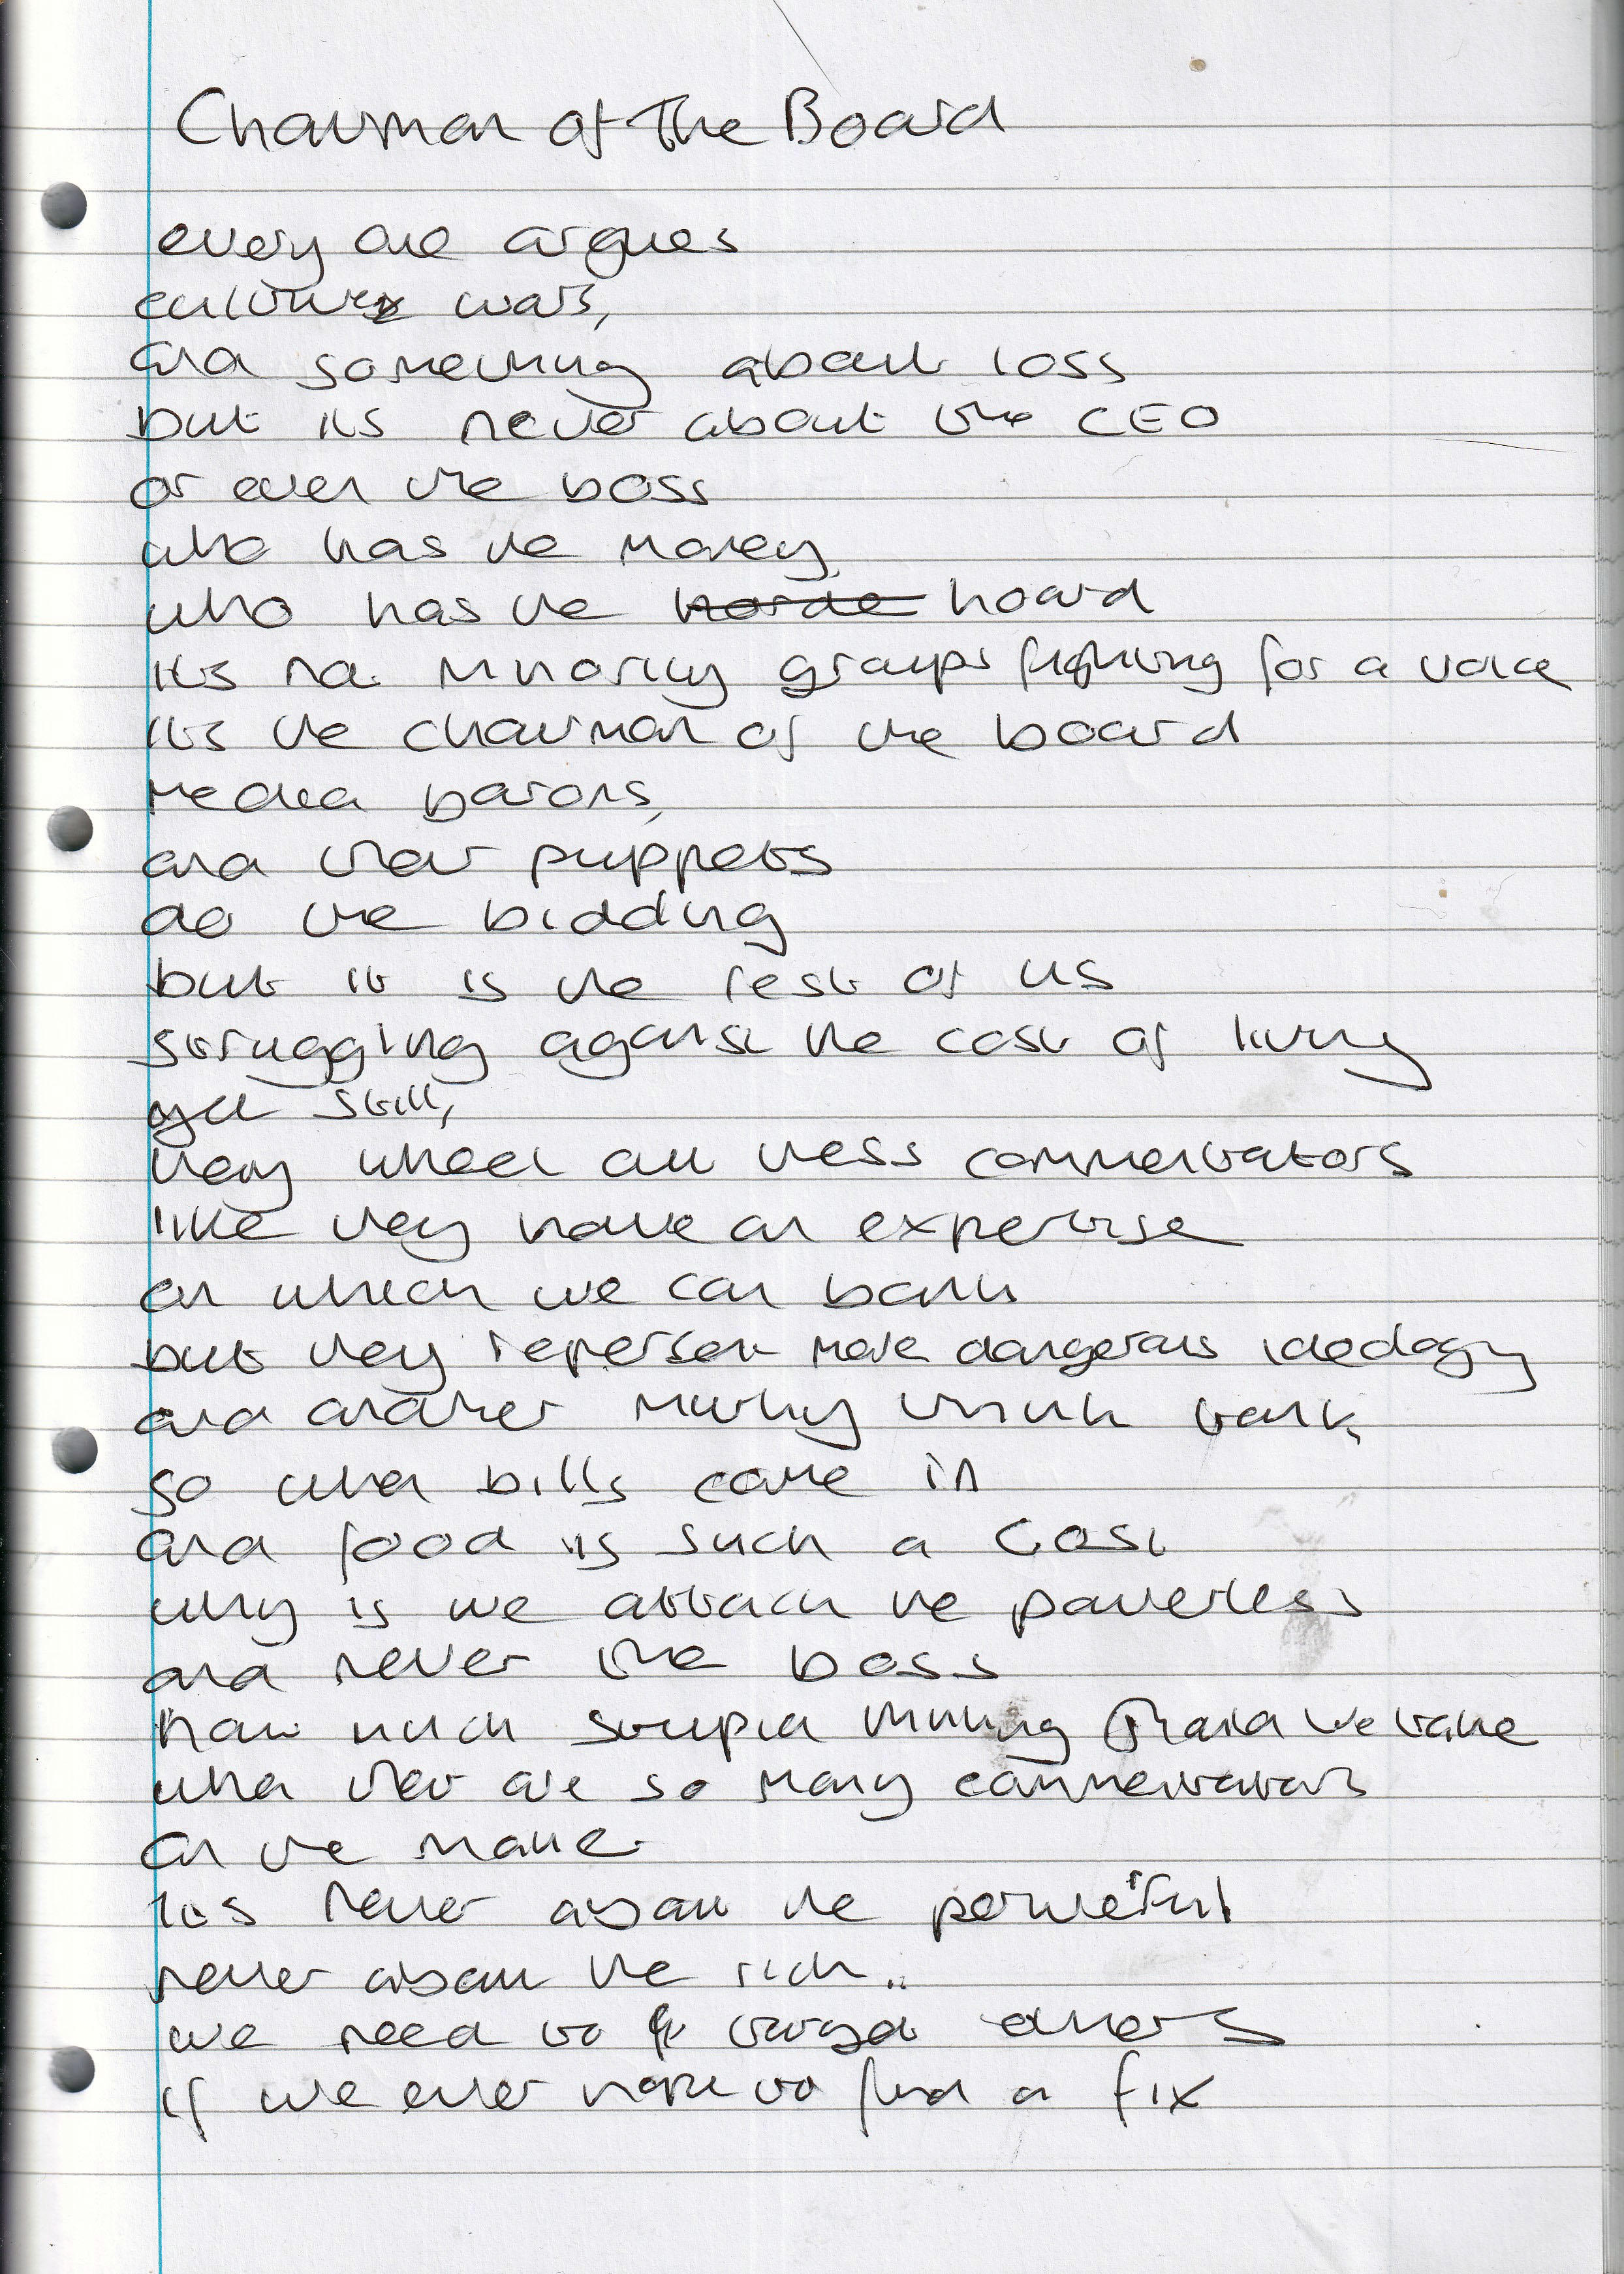 Chairman of The Board
every one argues
culture wars,
and something about loss
but its never about the CEO
or even the boss
who has the money
who has the horde hoard
its not minority groups fighting for a voice
its the chairman of the board
media barons,
and their puppets
do the bidding
but it is the rest of us
struggling against the cost of living
yet still,
they wheel out these commentators
like they have an expertise
on which we can bank
but they repersent more dangerous ideology
and another murky think tank,
so when bills come in
and food is such a cost
why is we attack the powerless
and never the boss
how much stupid thinking should we take
when their are so many commentators
on the make
its never about the powerful
never about the rich..
we need to target others
if we ever hope to find a fix